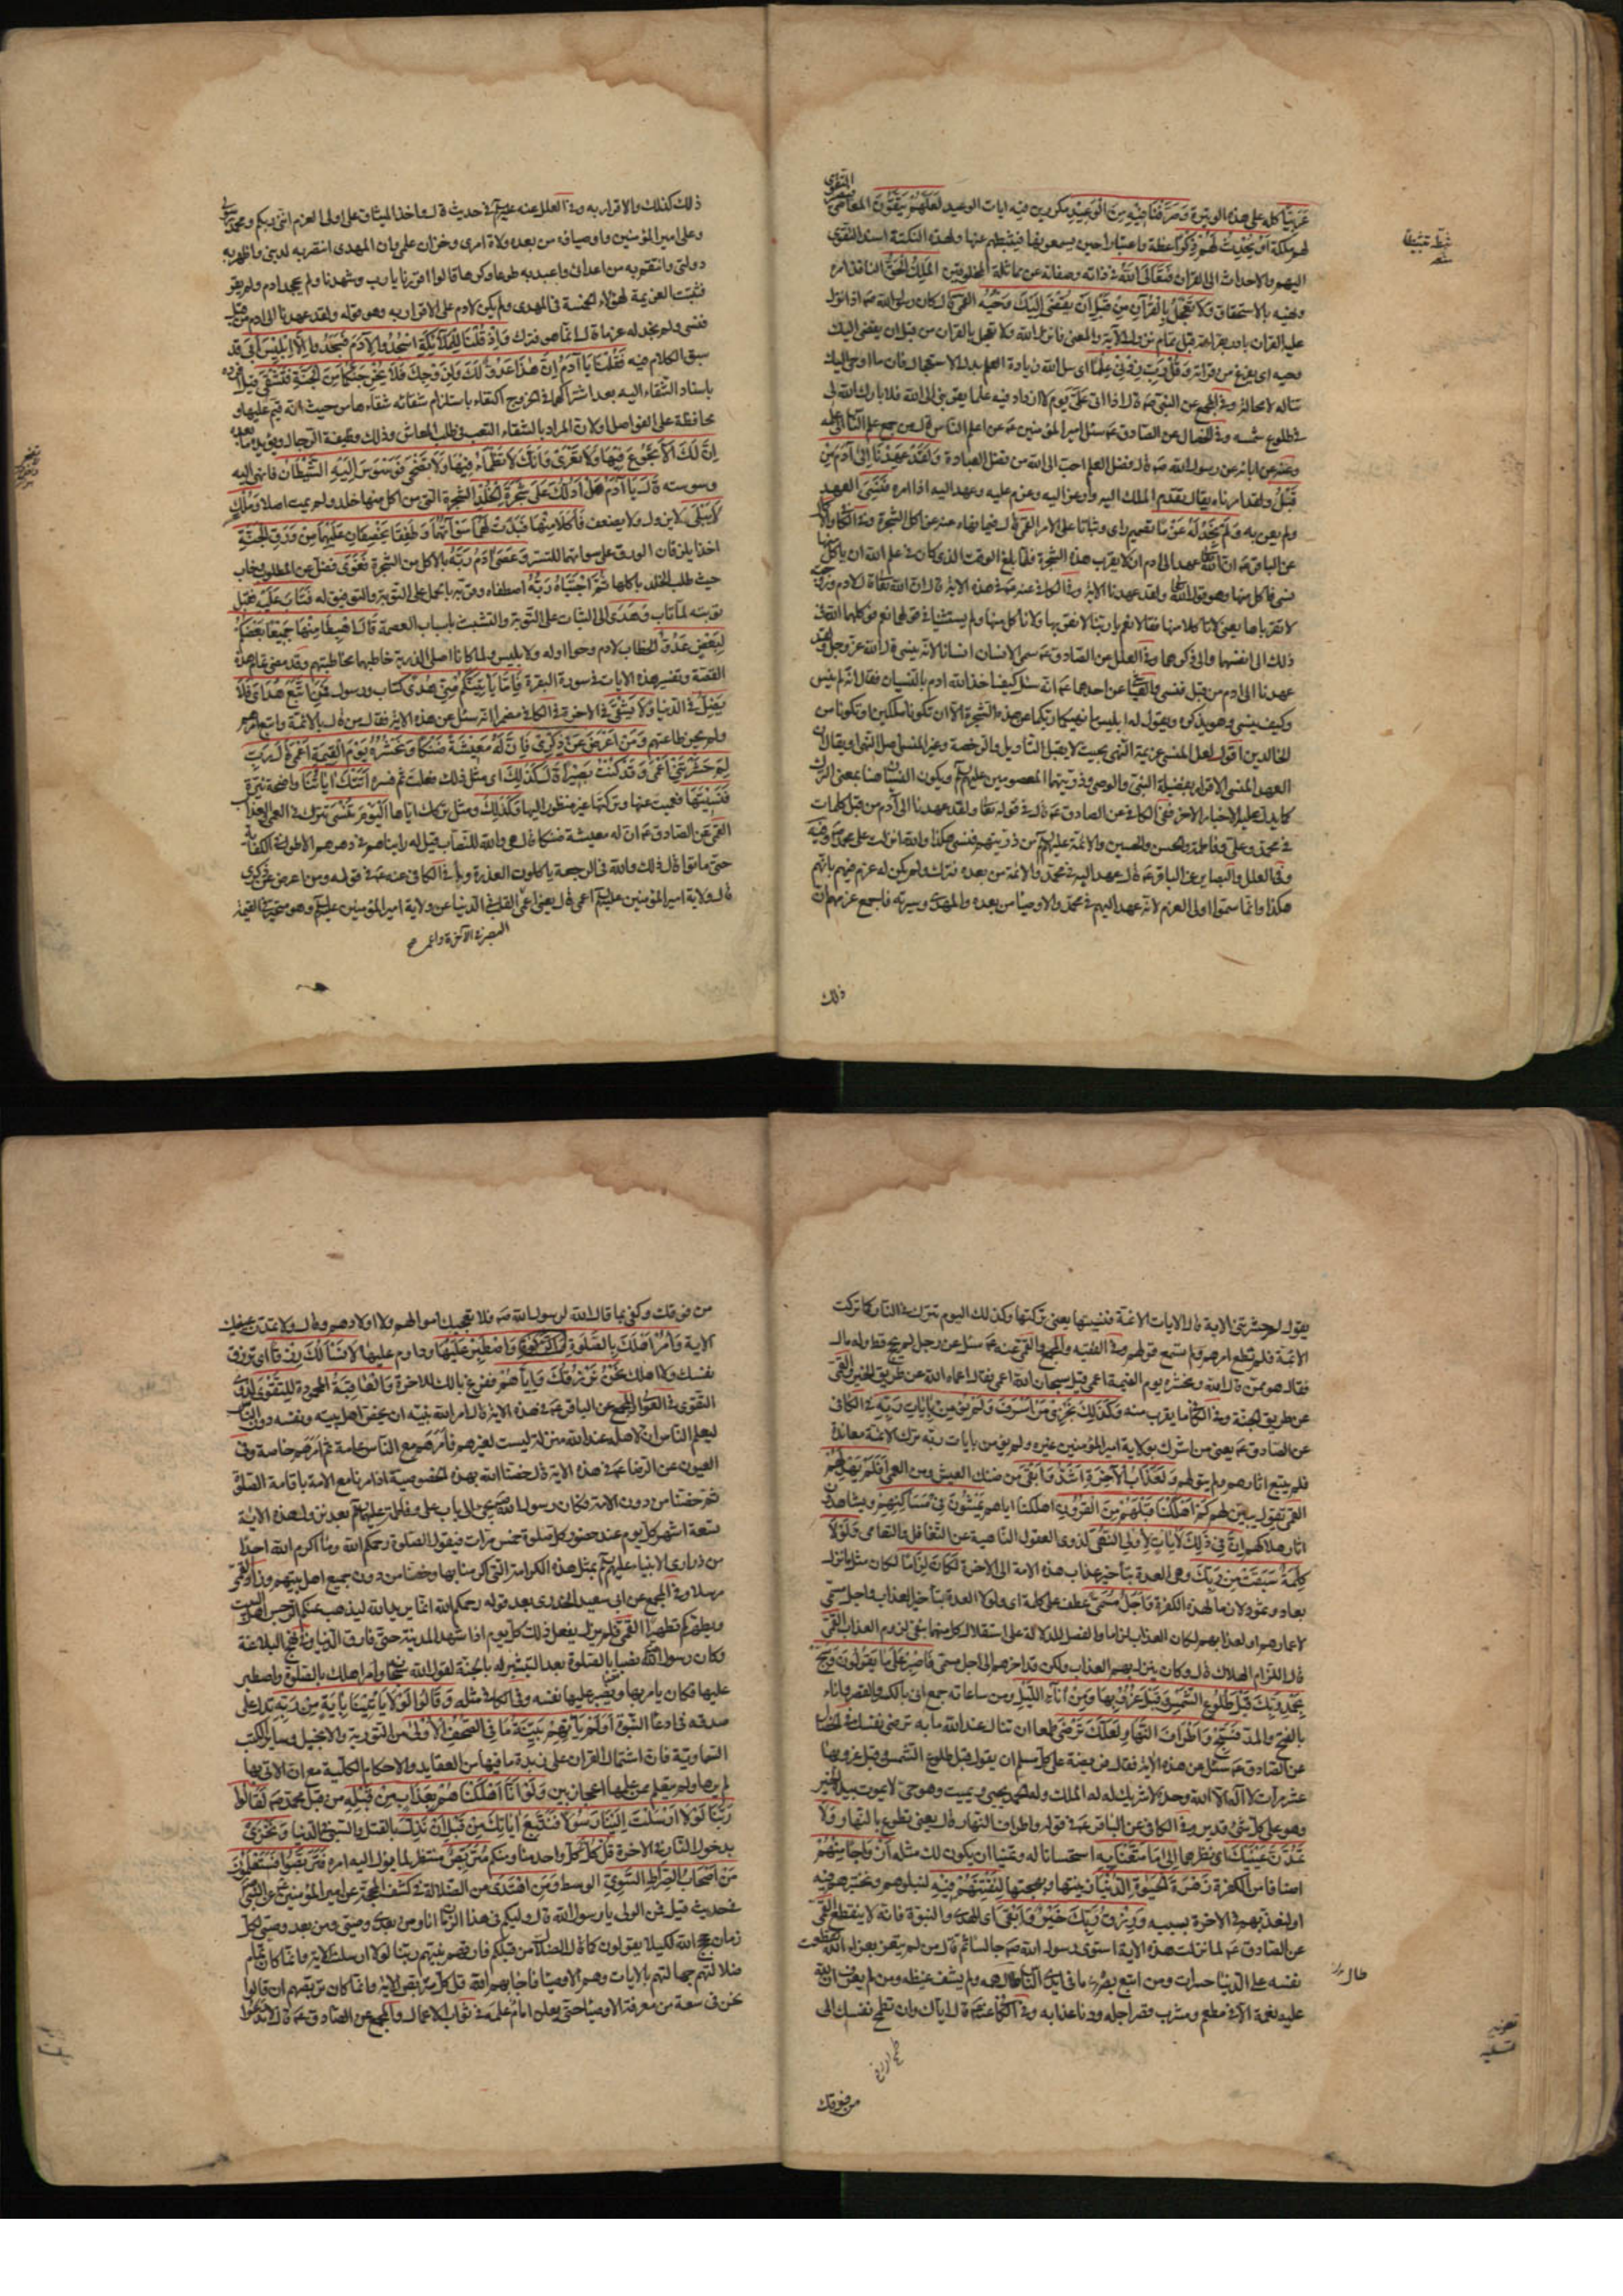 عَرَبِيًّا كله على هذه الوتيرة وَصَرَّفْنَا فِيهِ مِنَ الْوَعِيدِ مكررين فيه ايات الوعيد لَعَلَّهُمْ يَتَّقُونَ المعاصى
لهم ملكة أَوْ يُحْدِثُ لَهُمْ ذِكْرًا عظة واعتبارا حين يسمعونها فيثبطهم عنها ولهذه النكتة اسند التقوى
اليهم والاحداث الى القران فَتَعَالَى اللَّهُ فى ذاته وصفاته عن مماثلة المخلوقين الْمَلِكُ الْحَقُّ النافذ امره
ونهيه بالاستحقاق وَلَا تَعْجَلْ بِالْقُرْآنِ مِنْ قَبْلِ أَنْ يُقْضَى إِلَيْكَ وَحْيُهُ القمى قال كان رسول الله ص اذا نزل
عليه القران بادر بقراءته قبل تمام نزول الآية والمعنى فانزل الله ولا تعجل بالقران من قبل ان يقضى اليك
وحيه اى يفرغ من قراءته وَقُلْ رَبِّ زِدْنِي عِلْمًا اى سل الله زيادة العلم بدل الاستعجال فان ما اوحى اليك
تناله لا محالة وفى المجمع عن النبى ص قال اذا اتى علىّ يوم لا ازداد فيه علما يقربنى الى الله فلا بارك الله لى
فى طلوع شمسه وفى الخصال عن الصادق ع سئل امير المؤمنين ع من اعلم الناس قال من جمع علم الناس الى علمه
وعنه عن ابائه عن رسول الله ص قال فضل العلم احب الى الله من فضل العبادة وَلَقَدْ عَهِدْنَا إِلَى آدَمَ مِنْ
قَبْلُ ولقد امرناه يقال تقدم الملك اليه واوعز اليه وعزم عليه وعهد اليه اذا امره فَنَسِيَ العهد
ولم يعن به وَلَمْ نَجِدْ لَهُ عَزْمًا تصميم راى وثباتا على الامر القمى قال فيما نهاه عنه من اكل الشجرة
عن الباقر ع ان الله عهد الى ادم ان لا يقرب هذه الشجرة فلما بلغ الوقت الذى كان فى علم الله ان ياكل منها
نسى فاكل منها وهو قول الله ولقد عهدنا الاية وفى الكافى عنه ع فى هذه الاية قال ان الله تعالى قال لادم وزوجته
لا تقرباها يعنى لا تاكلا منها فقالا نعم يا ربنا لا نقربها ولا ناكل منها ولم يستثنيا فى قولهما نعم فوكلهما الله فى
ذلك الى انفسهما والى ذكرهما وفى العلل عن الصادق ع سمى الانسان انسانا لانه ينسى قال الله عز وجل ولقد
عهدنا الى ادم من قبل فنسى والعياشى عن احدهما ع انه سئل كيف اخذ الله ادم بالنسيان فقال انه لم ينس
وكيف ينسى وهو يذكره ويقول له ابليس ما نهيكما ربكما عن هذه الشجرة الا ان تكونا ملكين او تكونا من
الخالدين اقول لعل المنسى عزيمة النهى بحيث لا يقبل التاويل والرخصة وغير المنسى اصل النهى او يقال
العهد المنسى الاقرار بفضيلة النبى والوصى وذريتهما المعصومين عليهم السلام ويكون النسيان هنا بمعنى الترك
كما يدل عليه الاخبار الاخر ففى الكافى عن الصادق ع قال فى قوله تعالى ولقد عهدنا الى آدم من قبل كلمات
فى محمد وعلى وفاطمة والحسن والحسين والائمة عليهم السلام من ذريتهم فنسى هكذا والله انزلت على محمد ص وفيه
وفى العلل والبصاير عن الباقر ع قال عهد اليه فى محمد والائمة من بعده فترك ولم يكن له عزم فيهم بانهم
هكذا وانما سموا اولى العزم لانه عهد اليهم فى محمد والاوصياء من بعده والمهدى وسيرته فاجمع عزمهم ان
ذلك
ذلك كذلك والاقرار به وفى العلل عنه ع فى حديث قال واخذ الميثاق على اولى العزم اننى ربكم ومحمد رسولى
وعلى امير المؤمنين واوصياؤه من بعده ولاة امرى وخزان علمى وان المهدى انتصر به لدينى واظهر به
دولتى وانتقم به من اعدائى واعبد به طوعا وكرها قالوا اقررنا يا رب وشهدنا ولم يجحد ادم ولم يقر
فثبتت العزيمة لهؤلاء الخمسة فى المهدى ولم يكن لادم على الاقرار به وهو قوله ولقد عهدنا الى ادم من قبل
فنسى ولم نجد له عزما قال انما هو فترك وَإِذْ قُلْنَا لِلْمَلَائِكَةِ اسْجُدُوا لِآدَمَ فَسَجَدُوا إِلَّا إِبْلِيسَ أَبَى قد
سبق الكلام فيه فَقُلْنَا يَا آدَمُ إِنَّ هَذَا عَدُوٌّ لَكَ وَلِزَوْجِكَ فَلَا يُخْرِجَنَّكُمَا مِنَ الْجَنَّةِ فَتَشْقَى قيل افرده
باسناد الشقاء اليه بعد اشراكهما فى الخروج اكتفاء باستلزام شقائه شقاءها من حيث انه قيم عليها و
محافظة على الفواصل او لان المراد بالشقاء التعب فى طلب المعاش وذلك وظيفة الرجال ويؤيده ما بعده
إِنَّ لَكَ أَلَّا تَجُوعَ فِيهَا وَلَا تَعْرَى وَأَنَّكَ لَا تَظْمَأُ فِيهَا وَلَا تَضْحَى فَوَسْوَسَ إِلَيْهِ الشَّيْطَانُ فانهى اليه
وسوسته قَالَ يَا آدَمُ هَلْ أَدُلُّكَ عَلَى شَجَرَةِ الْخُلْدِ الشجرة التى من اكل منها خلد ولم يمت اصلا وَمُلْكٍ
لَا يَبْلَى لا يزول ولا يضعف فَأَكَلَا مِنْهَا فَبَدَتْ لَهُمَا سَوْآتُهُمَا وَطَفِقَا يَخْصِفَانِ عَلَيْهِمَا مِنْ وَرَقِ الْجَنَّةِ
اخذا يلزقان الورق على سواتهما للتستر وَعَصَى آدَمُ رَبَّهُ بالاكل من الشجرة فَغَوَى فضل عن المطلوب وخاب
حيث طلب الخلد باكلها ثُمَّ اجْتَبَاهُ رَبُّهُ اصطفاه وقربه بالحمل على التوبة والتوفيق له فَتَابَ عَلَيْهِ فقبل
توبته لما تاب وَهَدَى الى الثبات على التوبة والتشبث باسباب العصمة قَالَ اهْبِطَا مِنْهَا جَمِيعًا بَعْضُكُمْ
لِبَعْضٍ عَدُوٌّ الخطاب لادم وحوا او له ولابليس ولما كانا اصلى الذرية خاطبهما مخاطبتهم وقد مضى تمام هذه
القصة وتفسير هذه الايات فى سورة البقرة فَإِمَّا يَأْتِيَنَّكُمْ مِنِّي هُدًى كتاب ورسول فَمَنِ اتَّبَعَ هُدَايَ فَلَا
يَضِلُّ فى الدنيا وَلَا يَشْقَى فى الاخرة فى الكافى مضمرا انه سئل عن هذه الاية فقال من قال بالائمة واتبع امرهم
ولم يجز طاعتهم وَمَنْ أَعْرَضَ عَنْ ذِكْرِي فَإِنَّ لَهُ مَعِيشَةً ضَنْكًا وَنَحْشُرُهُ يَوْمَ الْقِيَمَةِ أَعْمَى قَالَ رَبِّ
لِمَ حَشَرْتَنِي أَعْمَى وَقَدْ كُنْتُ بَصِيرًا قَالَ كَذَلِكَ اى مثل ذلك فعلت ثم فسره أَتَتْكَ آيَاتُنَا واضحة نيرة
فَنَسِيتَهَا فعميت عنها وتركتها غير منظور اليها وَكَذَلِكَ ومثل تركك اياها الْيَوْمَ تُنْسَى تترك فى العمى والعذاب
القمى عن الصادق ع ان له معيشة ضنكا قال هى والله للنصاب قيل له رايناهم فى دهرهم الاطول فى الكفاية
حتى ماتوا قال ذلك والله فى الرجعة ياكلون العذرة وفى الكافى عنه ع فى قوله ومن اعرض عن ذكرى
قال ولاية امير المؤمنين عليه السلام اعمى قال يعنى اعمى القلب فى الدنيا عن ولاية امير المؤمنين عليه السلام وهو متحير فى القيمة
البصر فى الآخرة واعمى
يقول لم حشرتنى الاية قال الايات الائمة فنسيتها يعنى تركتها وكذلك اليوم تترك فى النار كما تركت
الائمة فلم تطع امرهم ولم تسمع قولهم وفى الفقيه والمجمع والقمى عنه ع سئل عن رجل لم يحج قط وله مال
فقال هو ممن قال الله ونحشره يوم القيمة اعمى قيل سبحان الله اعمى فقال اعماه الله عن طريق الخير القمى
عن طريق الجنة وفى الكافى ما يقرب منه وَكَذَلِكَ نَجْزِي مَنْ أَسْرَفَ وَلَمْ يُؤْمِنْ بِآيَاتِ رَبِّهِ فى الكافى
عن الصادق ع يعنى من اشرك بولاية امير المؤمنين غيره ولم يؤمن بايات ربه ترك الائمة معاندة
فلم يتبع اثارهم ولم يتولهم وَلَعَذَابُ الْآخِرَةِ أَشَدُّ وَأَبْقَى من ضنك العيش ومن العمى أَفَلَمْ يَهْدِ لَهُمْ
القمى يقول يبين لهم كَمْ أَهْلَكْنَا قَبْلَهُمْ مِنَ الْقُرُونِ اهلاكنا اياهم يَمْشُونَ فِي مَسَاكِنِهِمْ ويشاهدون
اثار هلاكهم إِنَّ فِي ذَلِكَ لَآيَاتٍ لِأُولِي النُّهَى لذوى العقول الناهية عن التغافل والتعامى وَلَوْلَا
كَلِمَةٌ سَبَقَتْ مِنْ رَبِّكَ وهى العدة بتأخير عذاب هذه الامة الى الاخرة لَكَانَ لِزَامًا لكان مثل ما نزل
بعاد وثمود لازما لهذه الكفرة وَأَجَلٌ مُسَمًّى عطف على كلمة اى ولولا العدة بتأخير العذاب واجل مسمى
لاعمارهم او لعذابهم لكان العذاب لزاما والفصل للدلالة على استقلال كل منهما بنفى لزوم العذاب القمى
قال اللزام الهلاك قال وكان ينزل بهم العذاب ولكن قد اخرهم الى اجل مسمى فَاصْبِرْ عَلَى مَا يَقُولُونَ وَسَبِّحْ
بِحَمْدِ رَبِّكَ قَبْلَ طُلُوعِ الشَّمْسِ وَقَبْلَ غُرُوبِهَا وَمِنْ آنَاءِ اللَّيْلِ ومن ساعاته جمع انى بالكسر والقصر واناء
بالفتح والمد فَسَبِّحْ وَأَطْرَافَ النَّهَارِ لَعَلَّكَ تَرْضَى طمعا ان تنال عند الله ما به ترضى نفسك فى الخصال
عن الصادق ع سئل عن هذه الاية فقال فريضة على كل مسلم ان يقول قبل طلوع الشمس وقبل غروبها
عشر مرات لا اله الا الله وحده لا شريك له له الملك وله الحمد يحيى ويميت وهو حى لا يموت بيده الخير
وهو على كل شئ قدير وفى الكافى عن الباقر ع فى قوله واطراف النهار قال يعنى تطوع بالنهار وَلَا
تَمُدَّنَّ عَيْنَيْكَ اى نظرهما إِلَى مَا مَتَّعْنَا بِهِ استحسانا له وتمنيا ان يكون لك مثله أَزْوَاجًا مِنْهُمْ
اصنافا من الكفرة زَهْرَةَ الْحَيَوةِ الدُّنْيَا زينتها وبهجتها لِنَفْتِنَهُمْ فِيهِ لنبلوهم ونختبرهم فيه
او لنعذبهم فى الاخرة بسببه وَرِزْقُ رَبِّكَ خَيْرٌ وَأَبْقَى اى الهدى والنبوة فانه لا ينقطع القمى
عن الصادق ع لما نزلت هذه الاية استوى رسول الله ص جالسا ثم قال من لم يتعز بعزاء الله تقطعت
نفسه على الدنيا حسرات ومن اتبع بصره ما فى ايدى الناس طال همه ولم يشف غيظه ومن لم يعرف ان لله
عليه نعمة الا فى مطعم ومشرب قصر اجله ودنا عذابه وفى الكافى عنه ع قال اياك وان تطمح نفسك الى
من فوقك
طال
من فوقك وكفى بما قال الله لرسول الله ص فلا تعجبك اموالهم ولا اولادهم وقال ولا تمدن عينيك
الاية وَأْمُرْ أَهْلَكَ بِالصَّلَوةِ وَاصْطَبِرْ عَلَيْهَا وداوم عليها لَا نَسْأَلُكَ رِزْقًا اى ترزق
نفسك ولا اهلك نَحْنُ نَرْزُقُكَ واياهم ففرغ بالك للاخرة وَالْعَاقِبَةُ المحمودة لِلتَّقْوَى لذوى
التقوى فى العيون والمجمع عن الباقر ع فى هذه الاية قال امر الله نبيه ان يخص اهل بيته ونفسه دون الناس
ليعلم الناس ان لاهله عند الله منزلة ليست لغيرهم فامرهم مع الناس عامة ثم امرهم خاصة وفى
العيون عن الرضا ع فى هذه الاية قال خصنا الله بهذه الخصوصية اذ امرنا مع الامة باقامة الصلوة
ثم خصنا من دون الامة فكان رسول الله ص يجئ الى باب على وفاطمة عليهما السلام بعد نزول هذه الاية
تسعة اشهر كل يوم عند حضور كل صلوة خمس مرات فيقول الصلوة رحمكم الله وما اكرم الله احدا
من ذرارى الانبياء عليهم السلام بمثل هذه الكرامة التى اكرمنا بها وخصنا من دون جميع اهل بيتهم والقمى
مرسلا وفى المجمع عن ابى سعيد الخدرى بعد قوله رحمكم الله انما يريد الله ليذهب عنكم الرجس اهل البيت
ويطهركم تطهيرا القمى فلم يزل يفعل ذلك كل يوم اذا شهد المدينة حتى فارق الدنيا وفى نهج البلاغة
وكان رسول الله نصبا بالصلوة بعد التبشير له بالجنة لقول الله سبحانه وأمر اهلك بالصلوة واصطبر
عليها فكان يامر بها ويصبر عليها نفسه وفى الكافى مثله وَقَالُوا لَوْلَا يَأْتِينَا بِآيَةٍ مِنْ رَبِّهِ تدل على
صدقه فى ادعاء النبوة أَوَلَمْ تَأْتِهِمْ بَيِّنَةُ مَا فِي الصُّحُفِ الْأُولَى من التورية والانجيل وساير الكتب
السماوية فان اشتمال القران على زبدة ما فيها من العقايد والاحكام الكلية مع ان الاتى بها
لم يرها ولم يتعلم ممن علمها اعجاز بين وَلَوْ أَنَّا أَهْلَكْنَاهُمْ بِعَذَابٍ مِنْ قَبْلِهِ من قبل محمد ص لَقَالُوا
رَبَّنَا لَوْلَا أَرْسَلْتَ إِلَيْنَا رَسُولًا فَنَتَّبِعَ آيَاتِكَ مِنْ قَبْلِ أَنْ نَذِلَّ بالقتل والسبى فى الدنيا وَنَخْزَى
بدخول النار فى الاخرة قُلْ كُلٌّ كل واحد منا ومنكم مُتَرَبِّصٌ منتظر لما يؤل اليه امره فَتَرَبَّصُوا فَسَتَعْلَمُونَ
مَنْ أَصْحَابُ الصِّرَاطِ السَّوِيِّ الوسط وَمَنِ اهْتَدَى من الضلالة فى كشف المحجة عن امير المؤمنين ع عن النبى
فى حديث قيل فمن الولى يا رسول الله قال وليكم فى هذا الزمان انا ومن بعدى وصيى ومن بعد وصيى لكل
زمان حجج الله لكيلا يقولون كما قال الضلال من قبلكم فارقهم نبيهم ربنا لولا ارسلت الاية وانما كان تمام
ضلالتهم جهالتهم بالايات وهم الاوصياء فاجابهم الله قل كل متربص الاية وانما كان تربصهم ان قالوا
نحن فى سعة من معرفة الاوصياء حتى يعلن امام علمه فى ثواب الاعمال والمجمع عن الصادق ع قال لا تدعوا